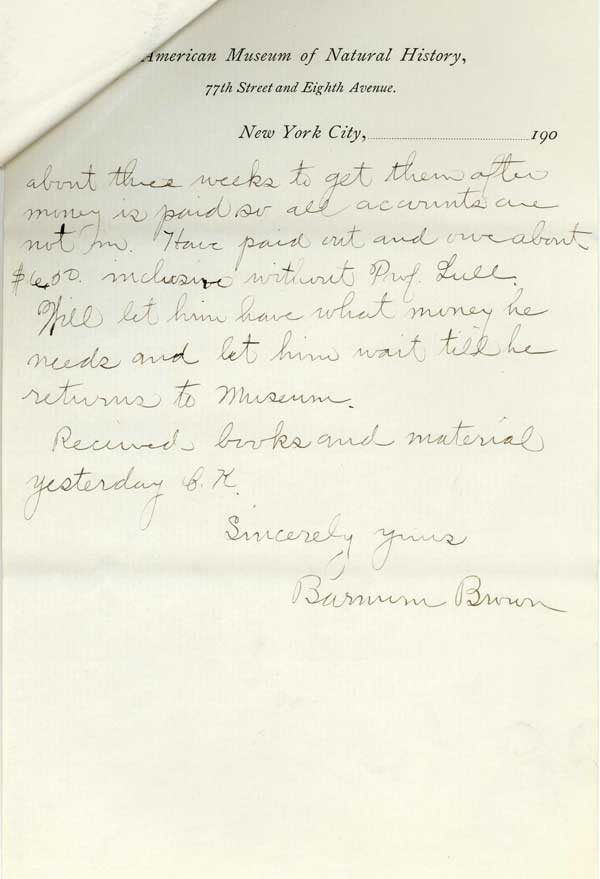 American Museum of Natural History,
77th Street and Eighth Avenue.
New York City, 190
about three weeks to get them after
money is paid so all accounts are
not in. Have paid out and owe about
inclusive without Prof. Lull.
Will let him have what money he
needs and let him wait till he
returns to Museum.
Recieved books and material
yesterday O.K.
Sincerely yours
Barnum Brown